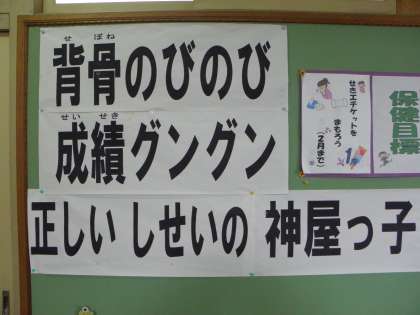 せ ぼね
背骨のびのび
せい せき
成績グングン
正しい しせいの 神屋っ子
保健目標
せきエチケットを
まもろう
(2月まで)